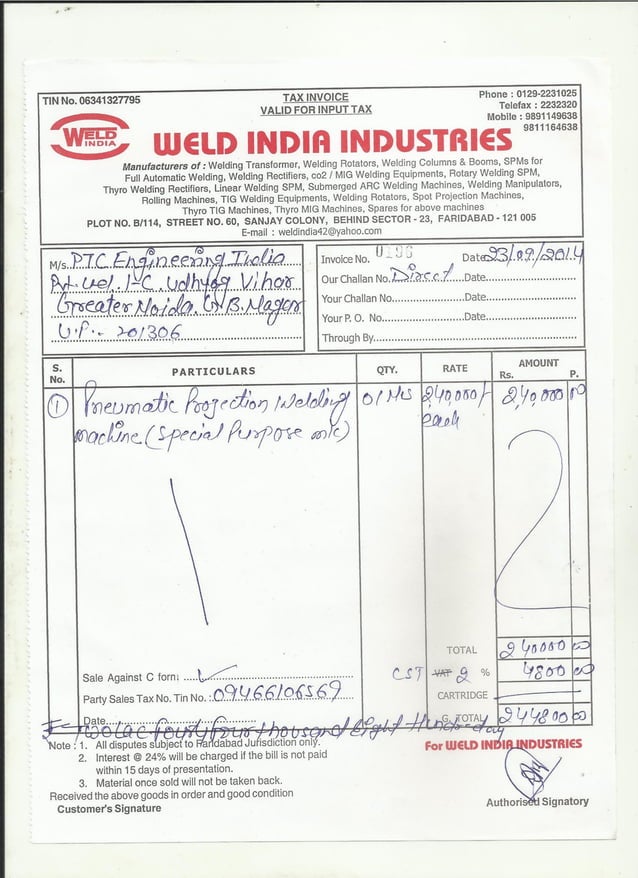 TIN No. 06341327795
TAX INVOICE
VALID FOR INPUT TAX
Phone : 0129-2231025
Telefax : 2232320
Mobile : 9891149638
9811164638
WELD
INDIA
WELD INDIA INDUSTRIES
Manufacturers of : Welding Transformer, Welding Rotators, Welding Columns & Booms, SPMs for
Full Automatic Welding, Welding Rectifiers, co2 / MIG Welding Equipments, Rotary Welding SPM,
Thyro Welding Rectifiers, Linear Welding SPM, Submerged ARC Welding Machines, Welding Manipulators,
Rolling Machines, TIG Welding Equipments, Welding Rotators, Spot Projection Machines,
Thyro TIG Machines, Thyro MIG Machines, Spares for above machines
PLOT NO. B/114, STREET NO. 60, SANJAY COLONY, BEHIND SECTOR - 23, FARIDABAD - 121 005
E-mail : weldindia42@yahoo.com
M/s. PTC Engineering India
Pvt. 1-C, Udhyog Vihar
Greater Noida, G.B. Nagar
U.P.- 201306
Invoice No. 0196 Date 23/09/2014
Our Challan No. Direct Date
Your Challan No. Date
Your P. O. No. Date
Through By
S. No. PARTICULARS QTY. RATE AMOUNT
Rs. P.
1 Pneumatic Projection Welding 01 240,000/- 2,40,000 00
machine (Special Purpose m/c) each
TOTAL 240000 00
Sale Against C form ✓ CST VAT 2 % 4800 00
Party Sales Tax No. Tin No. : 09466106569 CARTRIDGE
Date G. TOTAL 244800 00
Two Lac fourty four thousand Eight Hundred
Note : 1. All disputes subject to Faridabad Jurisdiction only.
For WELD INDIA INDUSTRIES
2. Interest @ 24% will be charged if the bill is not paid
within 15 days of presentation.
3. Material once sold will not be taken back.
Received the above goods in order and good condition
Customer's Signature
Authorised Signatory